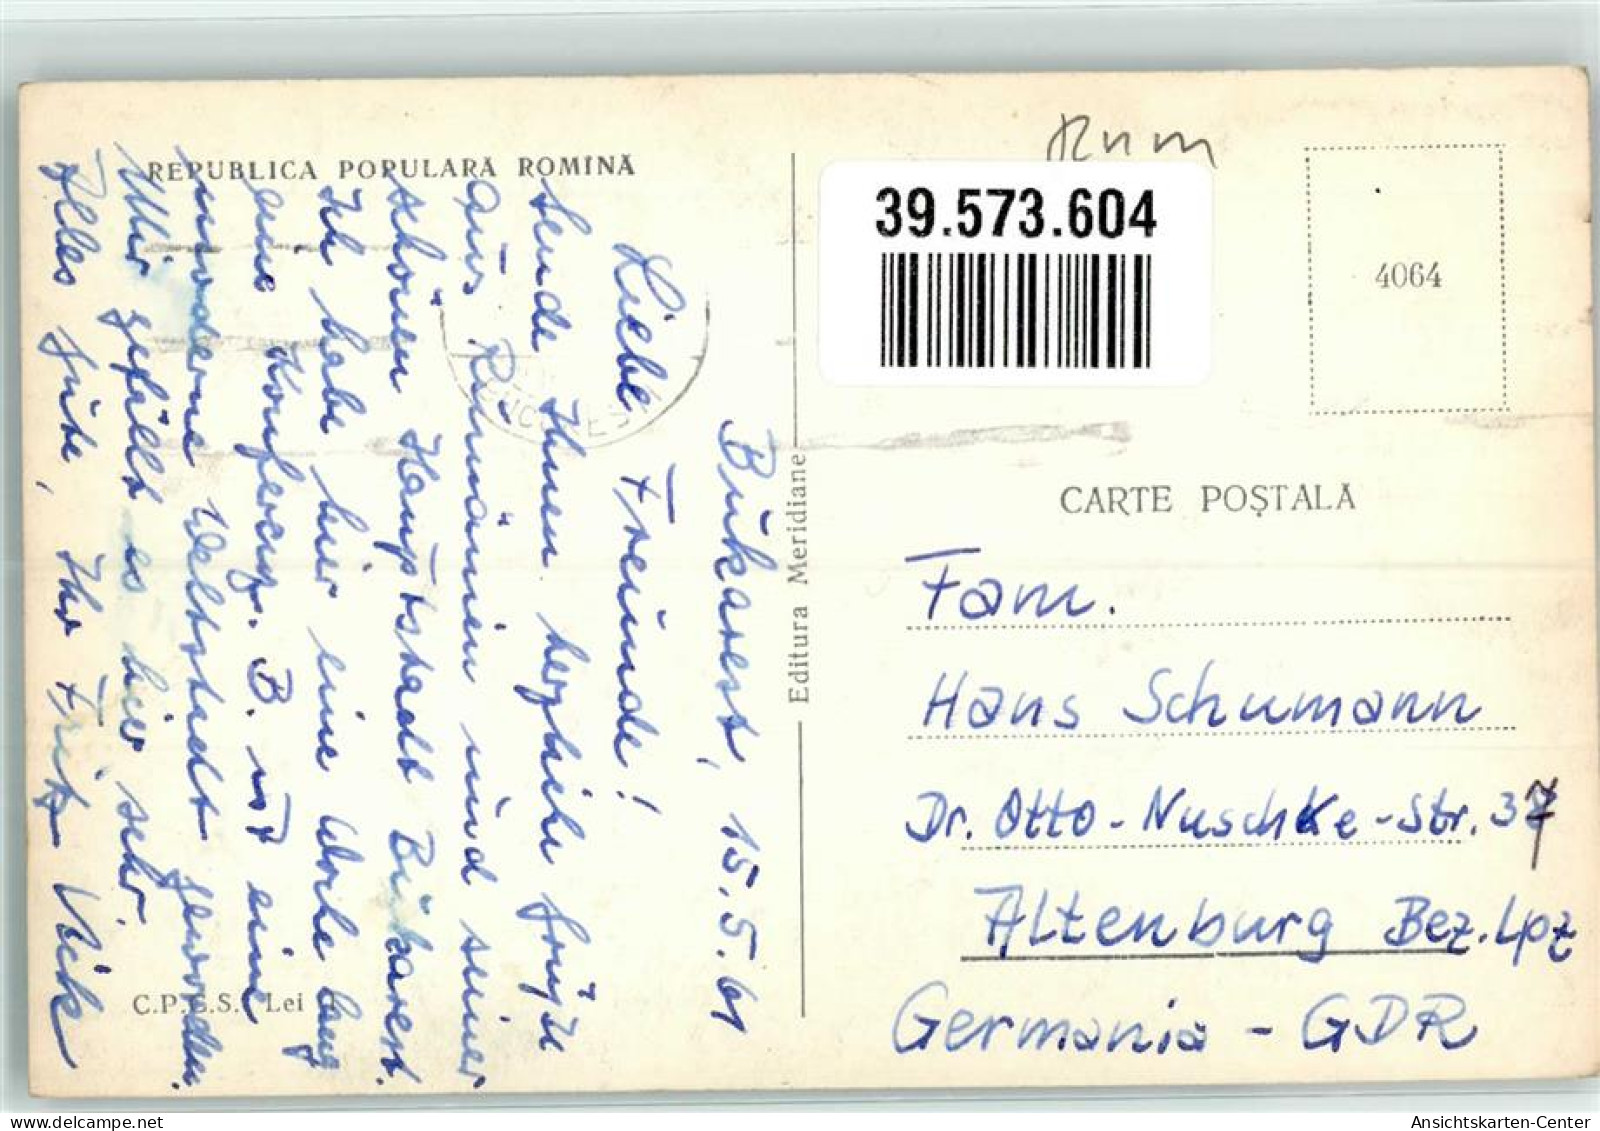 REPUBLICA POPULARĂ ROMÎNĂ
Bukarest, 15.5.61
Liebe Freunde!
Sende Ihnen herzliche Grüße
aus Rumänien und seiner
schönen Hauptstadt Bukarest.
Ich habe hier eine Woche lang
eine Konferenz. B. ist eine
moderne Weltstadt geworden.
Mir gefällt es hier sehr.
Alles Gute, Ihr Fritz
C.P.C.S. Lei
Editura Meridiane
Rum
39.573.604
4064
CARTE POȘTALĂ
Fam.
Hans Schumann
Dr. Otto-Nuschke-Str. 37
Altenburg Bez. Lpz
Germania - GDR
Ansichtskarten-Center